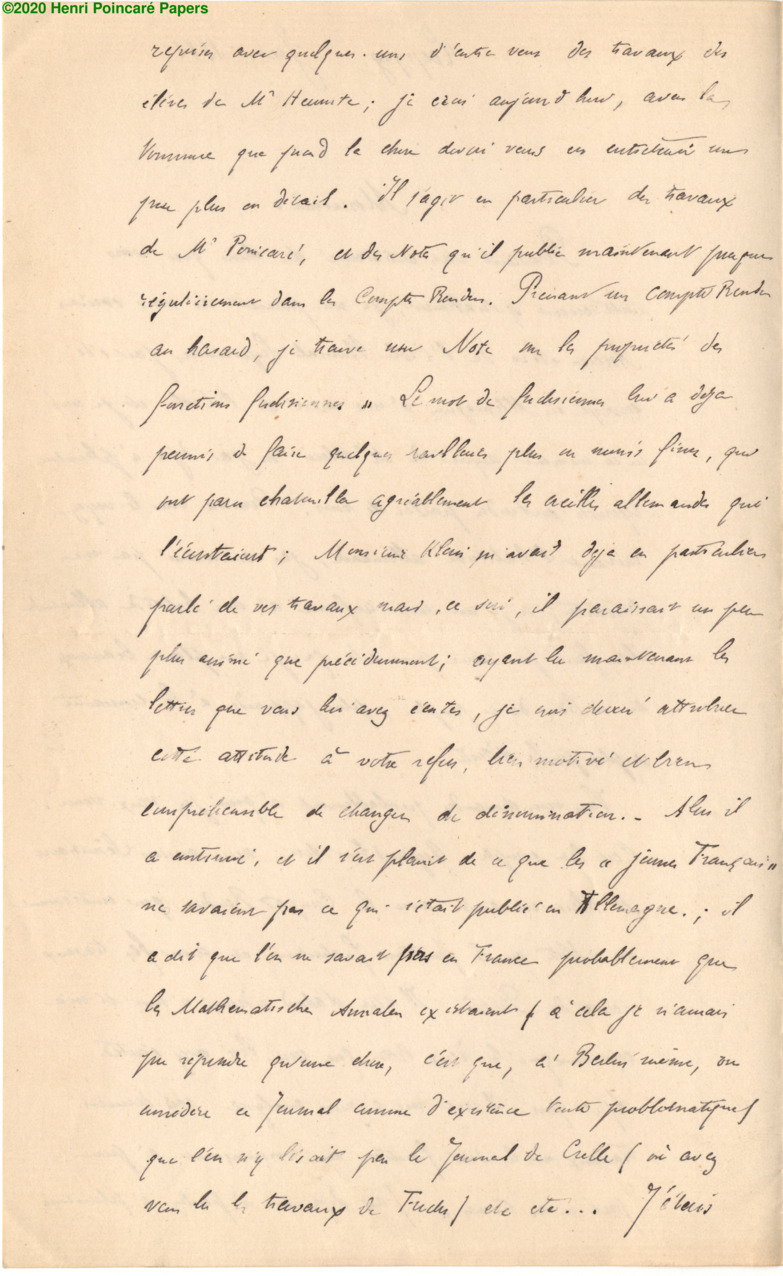 ©2020 Henri Poincaré Papers
reprises avec quelques-uns d'entre vous des travaux des
élèves de Mr Hermite; je crois aujourd'hui, avoir la
comme que quand la chose devoir vous en entretenir un
peu plus en détail. Il s'agit en particulier des travaux
de Mr Poincaré, et des Notes qu'il publie maintenant presque
régulièrement dans les Comptes Rendus. Prenant un compte Rendu
au hasard, je trouve une Note sur les propriétés des
fonctions fuchsiennes " Le mot de fuchsiennes lui a déjà
permis de faire quelques railleries plus ou moins fines, qui
ont paru chatouiller agréablement les oreilles allemandes qui
l'écoutaient; Monsieur Klein m'avait déjà en particulier
parlé de vos travaux mais, ce soir, il paraissait un peu
plus animé que précédemment; ayant lu maintenant les
lettres que vous lui avez écrites, je puis attribuer
cette attitude à votre refus, bien motivé et bien
compréhensible de changer de dénomination. - Alors il
a continué, et il s'est plaint de ce que les « jeunes Français »
ne savaient pas ce qui s'était publié en Allemagne. ; il
a dit que l'on ne savait pas en France probablement que
les Mathematischen Annalen existaient ( à cela je n'aurais
pu répondre qu'une chose, c'est que, à Berlin même, on
considère ce Journal comme d'existence toute problématique)
que l'on n'y lisait pas le Journal de Crelle ( où avez
vous lu les travaux de Fuchs) etc etc... J'étais